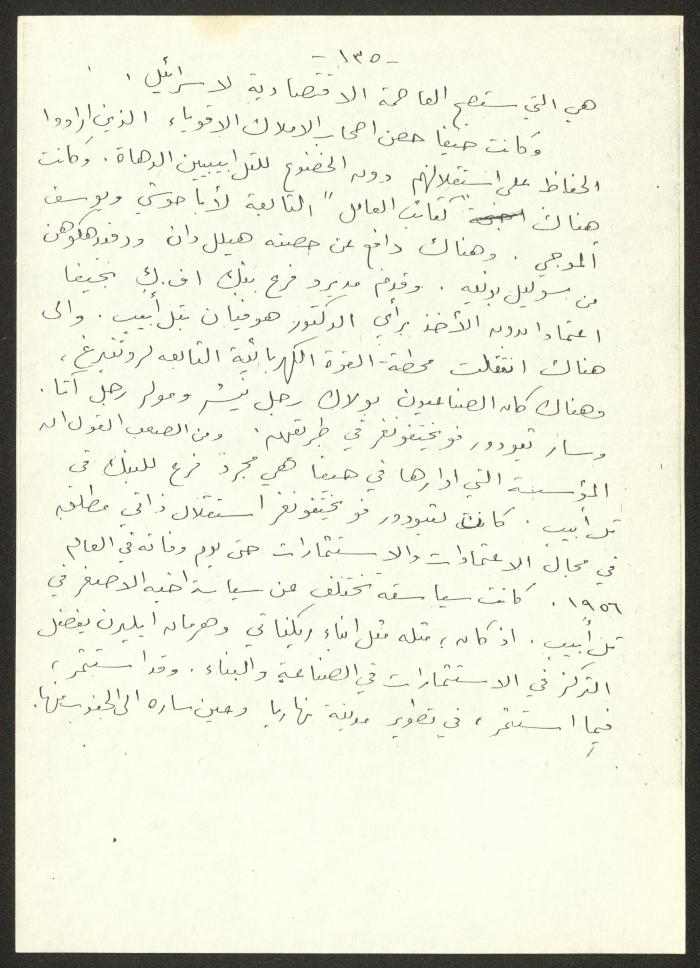 -١٣٥-
هي التي ستصبح العاصمة الاقتصادية لاسرائيل .
وكانت حيفا حصن اصحاب الاملاك الاقوياء الذين ارادوا
الحفاظ على استقلالهم دون الخضوع للتل ابيبيين الدهاة . وكانت
هناك " كتائب العامل " التابعة لأبا حوشي ويوسف
ألموجي . وهناك دافع عن حصنه هيلل دان
من سوليل بونيه . وقدم مدير فرع بنك اف.ك بحيفا
اعتمادا بدون الأخذ برأي الدكتور هوفيان بتل أبيب . والى
هناك انتقلت محطة القوة الكهربائية التابعه لروتنبرغ ،
وهناك كان الصناعيون بولاك رجل نيشر ومولر رجل آتا .
وسار تيودور فويختفونغر في طريقهم . ومن الصعب القول ان
المؤسسة التي ادارها في حيفا هي مجرد فرع للبنك في
تل أبيب . كانت لتيودور فويختفونغر استقلال ذاتي مطلق
في مجال الاعتمادات والاستثمارات حتى يوم وفاته في العام
١٩٥٦ . كانت سياسته تختلف عن سياسة اخيه الاصغر في
تل أبيب . اذ كان ، مثله مثل ابناء ريكناتي وهرمان ايليرن يفضل
التركز في الاستثمارات في الصناعة والبناء . وقد استثمر ،
فيما استثمر ، في تطوير مدينة نهاريا وعين ساره الى الجنوب منها .